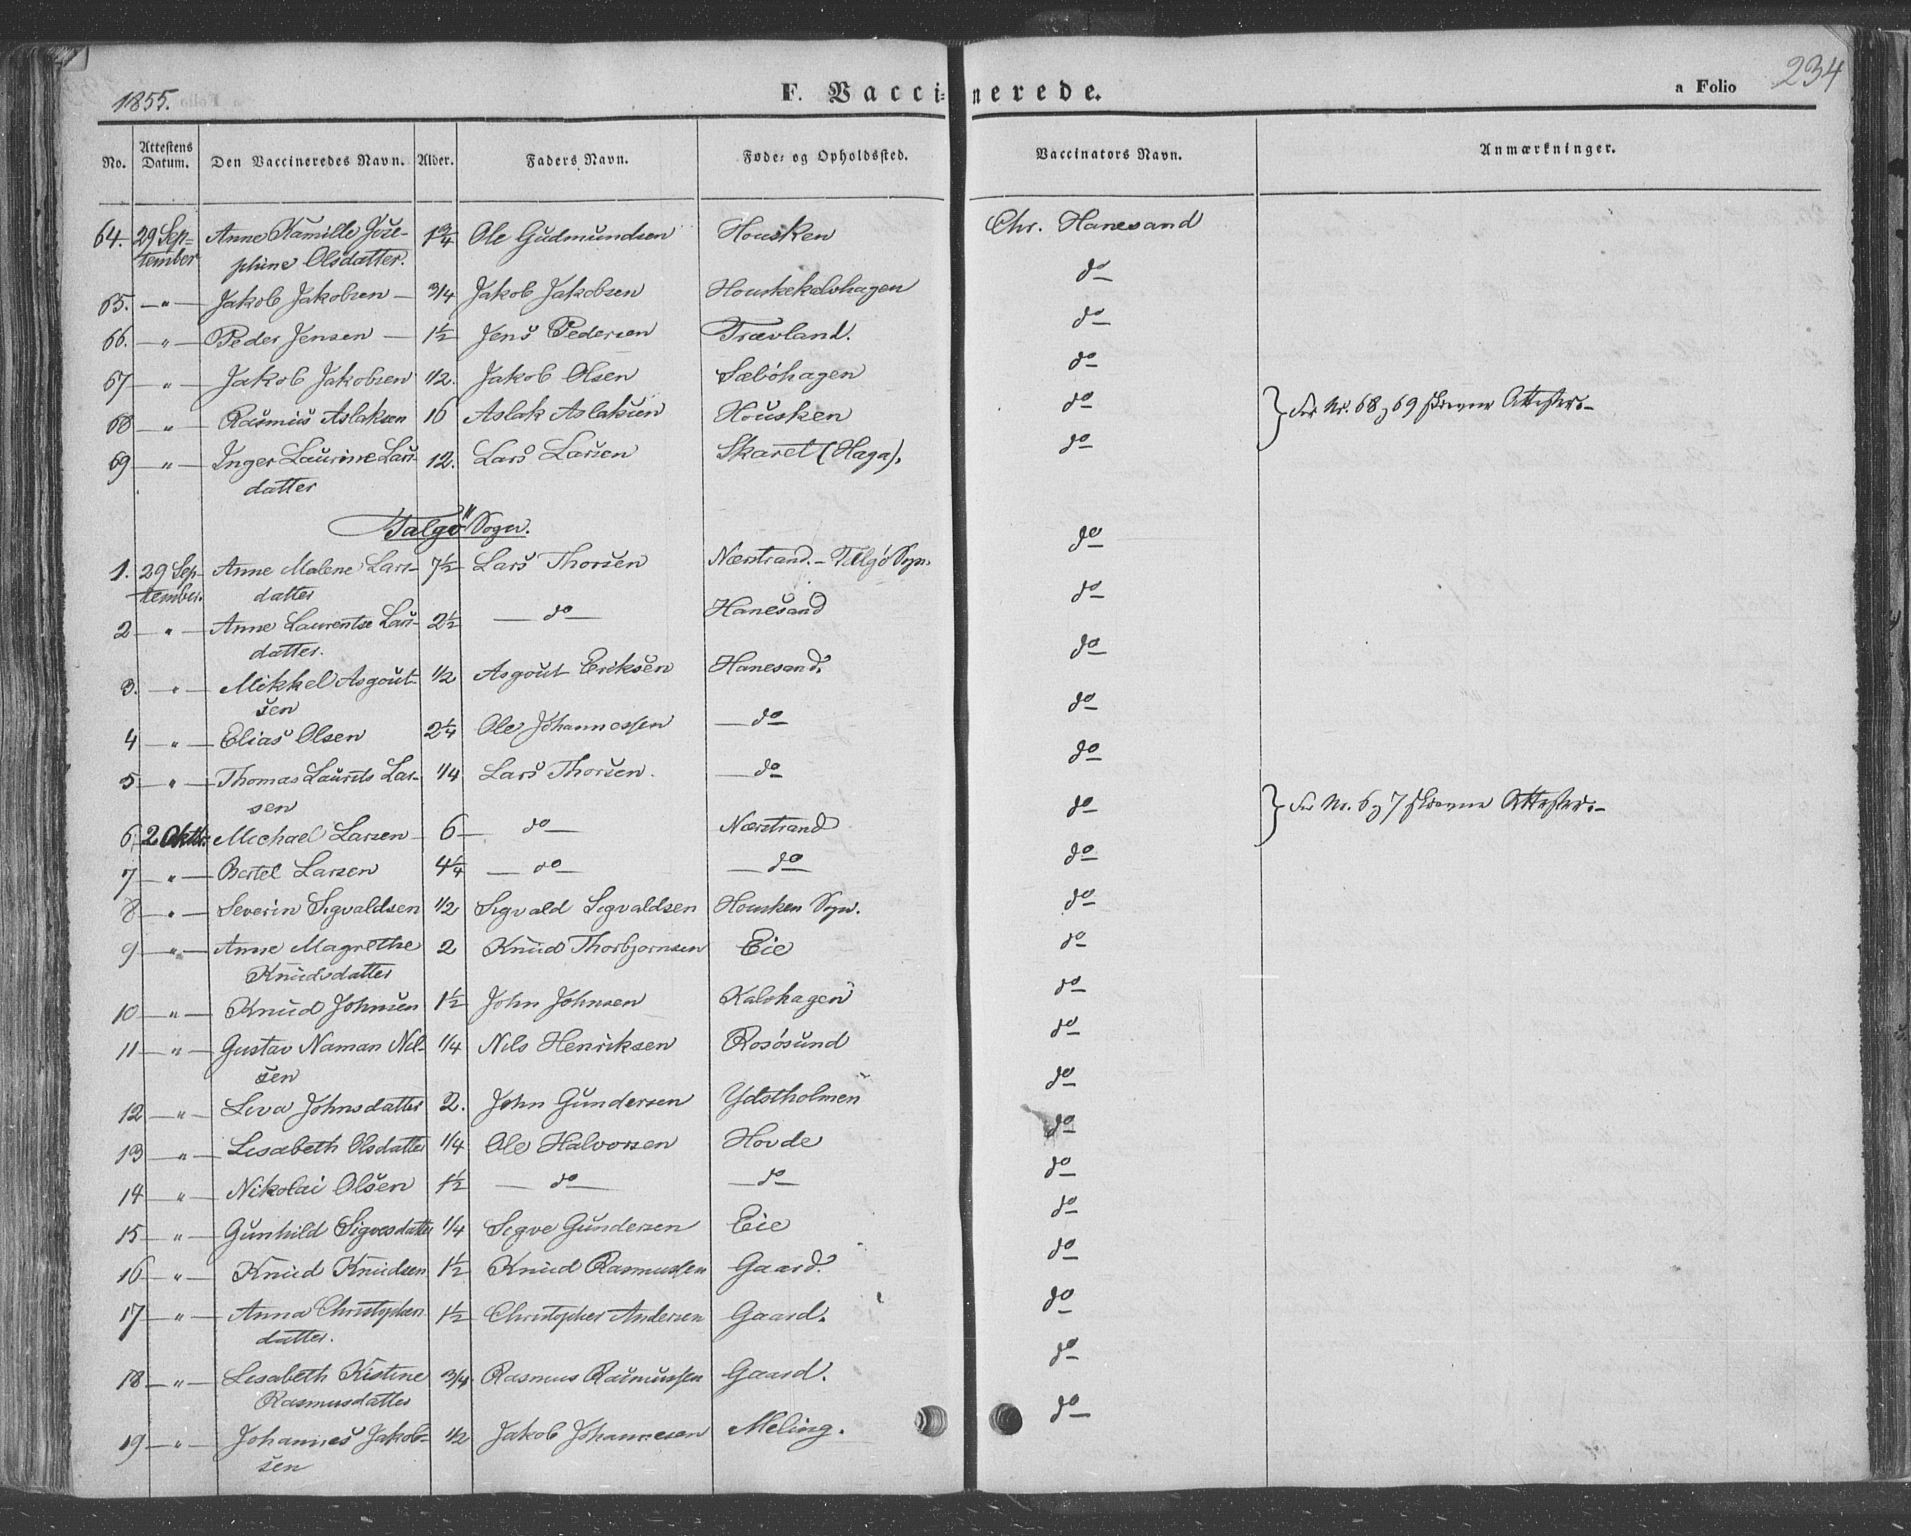 1855. F. Vaccinerede. a Folio 234
No. Attestens Datum. Den Vaccineredes Navn. Alder. Faders Navn. Føde- og Opholdssted. Vaccinators Navn. Anmærkninger.
64. 29 Sep- Anne Kamille Jose- 1 3/4 Ole Gudmundsen Housken Chr. Hanesand
tember phine Olsdatter.
65. — " — Jakob Jakobsen — 3/4 Jakob Jakobsen do
66. — " — Peder Jensen — 1 1/2 Jens Pedersen Trævland. do
67 — " — Jakob Jakobsen 1/2. Jakob Olsen Sæbøhagen do
68 — " — Rasmus Aslaksen 16 Aslak Aslaksen Housken do } for No. 68 og 69 Attester. —
69 — " — Inger Laurine Lars- 12. Lars Larsen Skaret (Haga). do
datter
Talgö Sogn.
1. 29 Sep- Anne Malene Lars- 7 1/2 Lars Thorsen Nærstrand. — Talgö Sogn. do
tember. datter
2 — " — Anne Laurentse Lars- 2 1/2 — do — Hanesand do
datter.
3. — " — Mikkel Asgout- 1/2 Asgout Eriksen Hanesand. do
sen
4 — " — Elias Olsen 2 1/4 Ole Johannessen — do do
5 — " — Thomas Laurits Lar- 1/4 Lars Thorsen. — do do
sen
6. 2 Oktbr. Michael Larsen — 6 — do — Nærstrand do } for No. 6 og 7 Attester. —
7 — " — Bertel Larsen 4 1/4 — do — — do — do
8 — " — Severin Sigvaldsen 1/2 Sigvald Sigvaldsen Housken Sogn. do
9 — " — Anne Magrethe 2 Knud Thorbjornsen Eie do
Knudsdatter
10 — " — Knud Johnsen 1 1/2 John Johnsen Kalvhagen do
11 — " — Gustav Naman Nil- 1/4 Nils Henriksen Rosøsund do
sen
12 — " — Johnsdatter 2. John Gundersen Ydstholmen do
13 — " — Lisabeth Olsdatter 1/4 Ole Halvorsen Hovde do
14 — " — Nikolai Olsen 1 1/2 — do — — do — do
15 — " — Gunhild Sigvesdatter 1/4 Sigve Gundersen Eie do
16 — " — Knud Knudsen 1 1/2 Knud Rasmussen Gaard. do
17 — " — Anna Christophers 1 1/2 Christopher Andersen Gaard. do
datter.
18 — " — Lisabeth Kistine 3/4 Rasmus Rasmussen Gaard. do
Rasmusdatter
19 — " — Johannes Jakob- 1/2 Jakob Johannesen Meling. do
sen